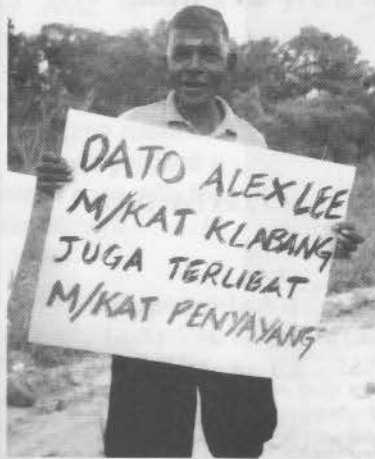 DATO ALEX LEE
M/KAT KLABANG
JUGA TERLIBAT
M/KAT PENYAYANG